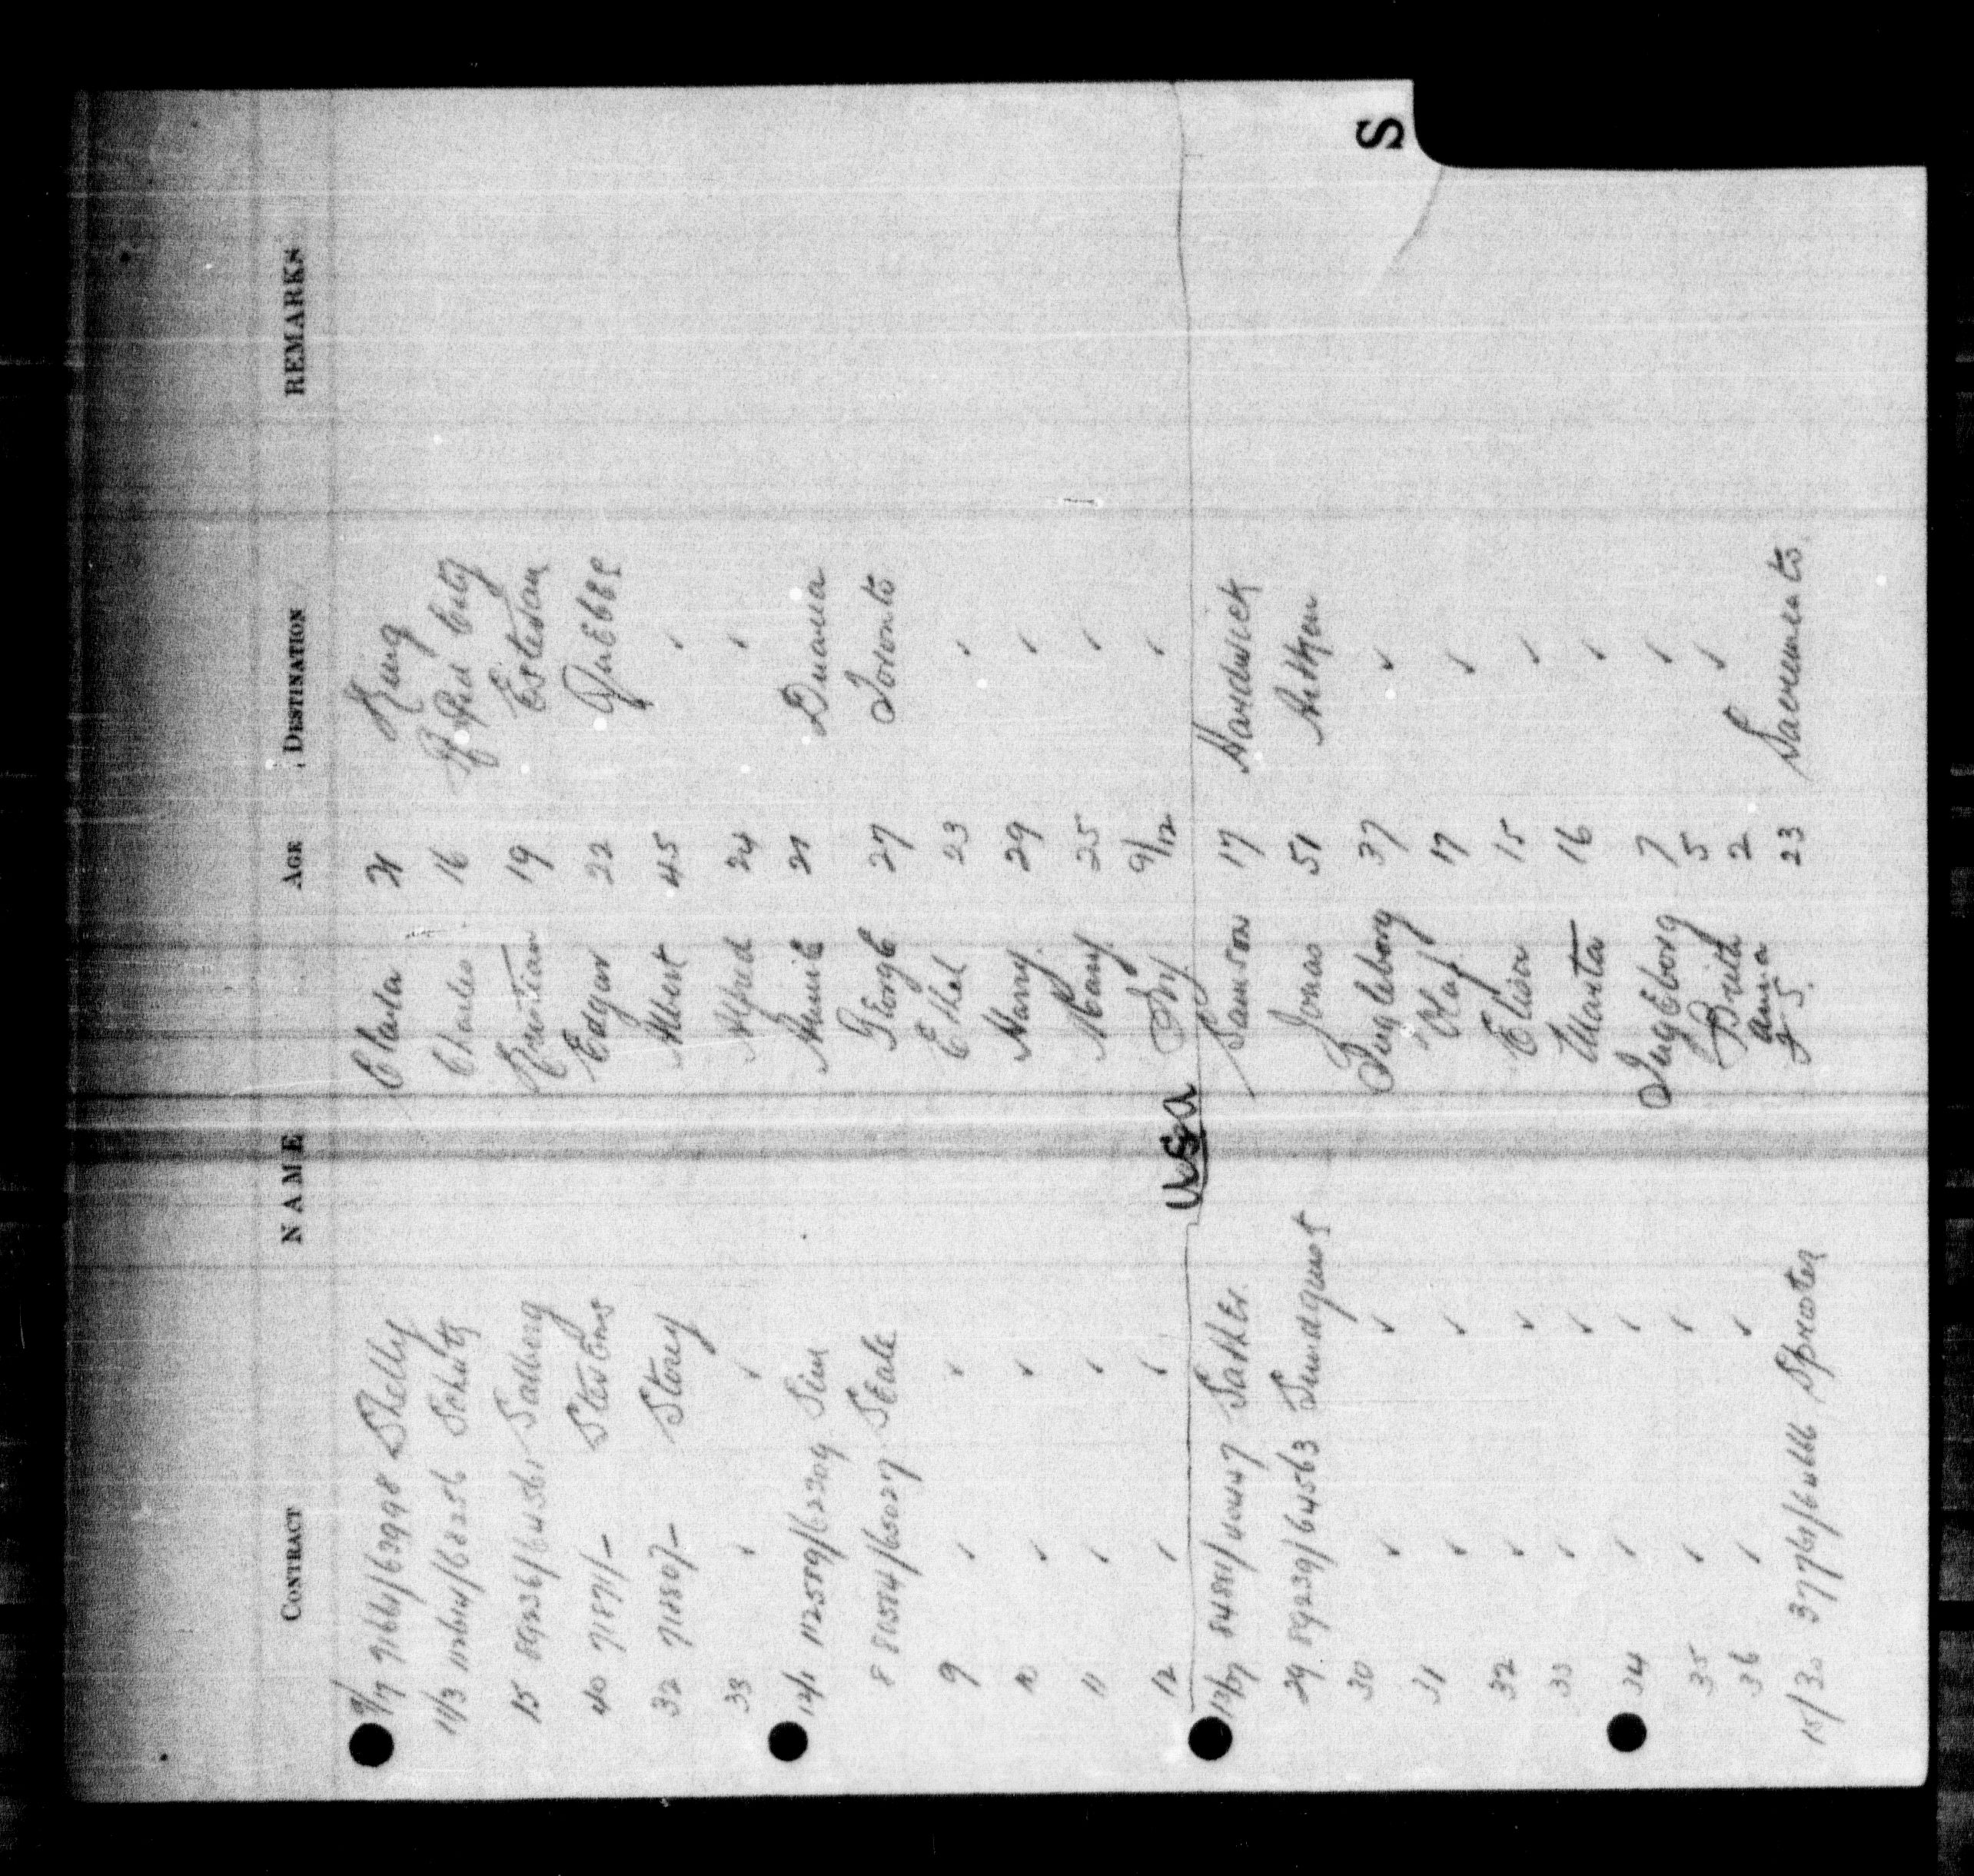 S
CONTRACT NAME AGE DESTINATION REMARKS
9/7 71664/63998 Shelly Clara 21 King
11/3 112614/68256 Schultz Charles 16 Rapid City
15 89236/64561 Salberg Kristian 19 Estevan
40 71871/- Stevens Edgar 22 Quebec
32 71880/- Storey Albert 45 ✓
33 ✓ ✓ Alfred 24 ✓
12/1 112589/62309 Sim Annie 21
8 81584/65027 Seale George 27 Toronto
9 ✓ ✓ Ethel 23 ✓
10 ✓ ✓ Harry 29 ✓
11 ✓ ✓ Mary 25 ✓
12 ✓ ✓ Ivy 9/12 ✓
USA
13/37 84881/60447 Sather Samson 17 Hardwick
29 89239/64563 Sundquist Jonas 51 Aitken
30 ✓ ✓ Ingleborg 37 ✓
31 ✓ ✓ Olaf 17 ✓
32 ✓ ✓ Elisa 15 ✓
33 ✓ ✓ Marta 16 ✓
34 ✓ ✓ Ingeborg 7 ✓
35 ✓ ✓ Brita 5 ✓
36 ✓ ✓ Anna 2
15/30 37761/64666 Sproster J S. 23 Sacremento